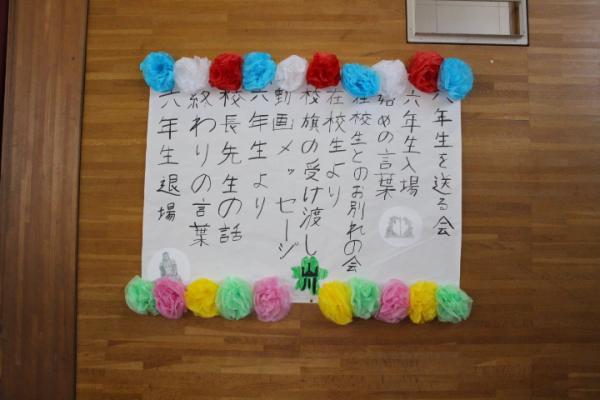 六年生を送る会
六年生入場
始めの言葉
在校生とのお別れの会
在校生より
校旗の受け渡し
動画メッセージ
六年生より
校長先生の話
終わりの言葉
六年生退場
山川